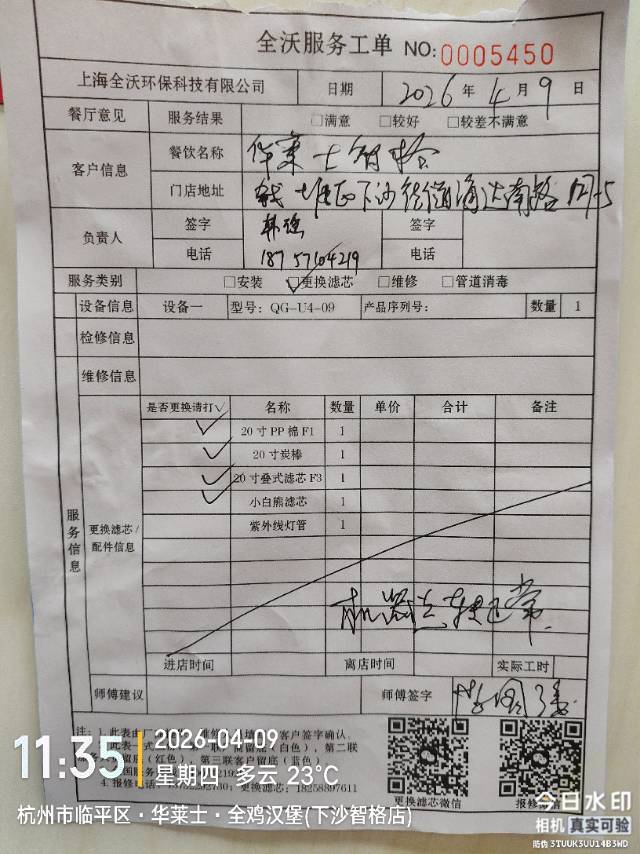 全沃服务工单 NO:0005450
上海全沃环保科技有限公司 日期 2026 年 4 月 9 日
餐厅意见 服务结果 □满意 □较好 □较差不满意
客户信息 餐饮名称 华莱士智格
门店地址 下沙街道通达南路127-5
负责人 签字 韩 签字
电话 18757104219 电话
服务类别 □安装 ☑更换滤芯 □维修 □管道消毒
设备信息 设备一 型号: QG-U4-09 产品序列号: 数量 1
检修信息
维修信息
服务信息
更换滤芯/配件信息
是否更换请打√ 名称 数量 单价 合计 备注
√ 20寸PP棉F1 1
√ 20寸炭棒 1
√ 20寸叠式滤芯F3 1
√ 小白熊滤芯 1
紫外线灯管 1
机器运转正常
进店时间 离店时间 实际工时
师傅建议 师傅签字
注: 1.此表由 客户签字确认.
(白色), 第二联
(红色), 第三联客户留底(蓝色)
更换滤芯: 18258897611
更换滤芯微信 报修微信
11:35 2026-04-09
星期四 多云 23℃
杭州市临平区·华莱士·全鸡汉堡(下沙智格店)
今日水印
相机 真实可验
防伪 3TUUK3UU14B3WD